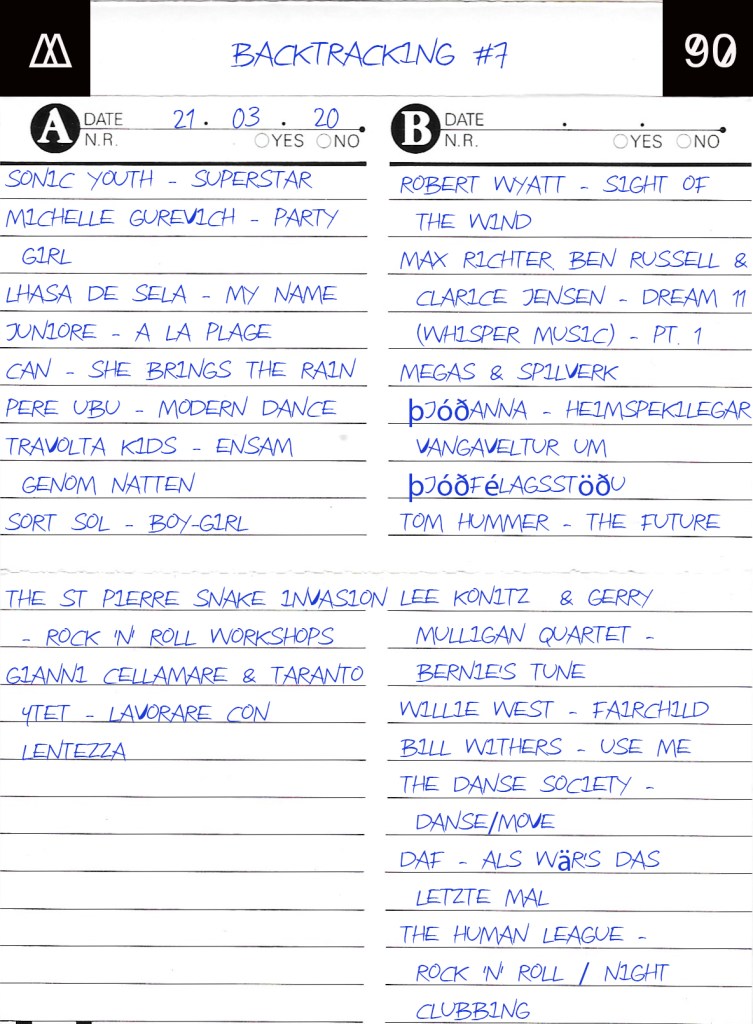 BACKTRACKING #7
90
A DATE 21. 03. 20.
N.R. YES NO
SONIC YOUTH - SUPERSTAR
MICHELLE GUREVICH - PARTY
GIRL
LHASA DE SELA - MY NAME
JUNIORE - A LA PLAGE
CAN - SHE BRINGS THE RAIN
PERE UBU - MODERN DANCE
TRAVOLTA KIDS - ENSAM
GENOM NATTEN
SORT SOL - BOY-GIRL
THE ST PIERRE SNAKE INVASION
- ROCK 'N' ROLL WORKSHOPS
GIANNI CELLAMARE & TARANTO
4TET - LAVORARE CON
LENTEZZA
B DATE . . .
N.R. YES NO
ROBERT WYATT - SIGHT OF
THE WIND
MAX RICHTER, BEN RUSSELL &
CLARICE JENSEN - DREAM 11
(WHISPER MUSIC) - PT. 1
MEGAS & SPILVERK
þJóðANNA - HEIMSPEKILEGAR
VANGAVELTUR UM
þJóðFéLAGSSTöðU
TOM HUMMER - THE FUTURE
LEE KONITZ & GERRY
MULLIGAN QUARTET -
BERNIE'S TUNE
WILLIE WEST - FAIRCHILD
BILL WITHERS - USE ME
THE DANSE SOCIETY -
DANSE/MOVE
DAF - ALS WäR'S DAS
LETZTE MAL
THE HUMAN LEAGUE -
ROCK 'N' ROLL / NIGHT
CLUBBING